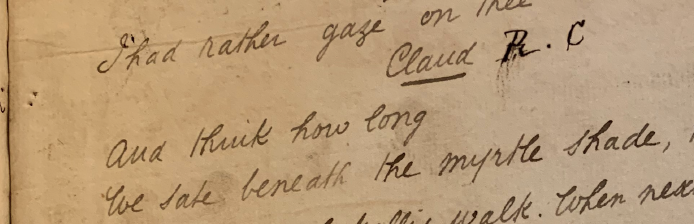 I had rather gaze on thee
Claud R. C
And think how long
We sate beneath the myrtle shade,
walk. When nex